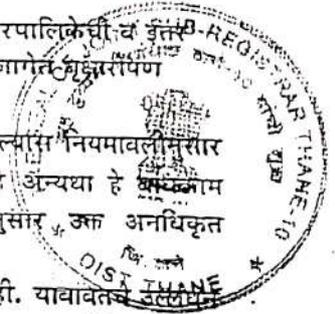 रपालिकेची व इतर
जागेत वृक्षारोपण
ल्यास नियमावलीनुसार
अन्यथा हे बांधकाम
नुसार उक्त अनधिकृत
ही. याबाबतचे उल्लंघन
SUB-REGISTRAR THANE-10
DIST. THANE